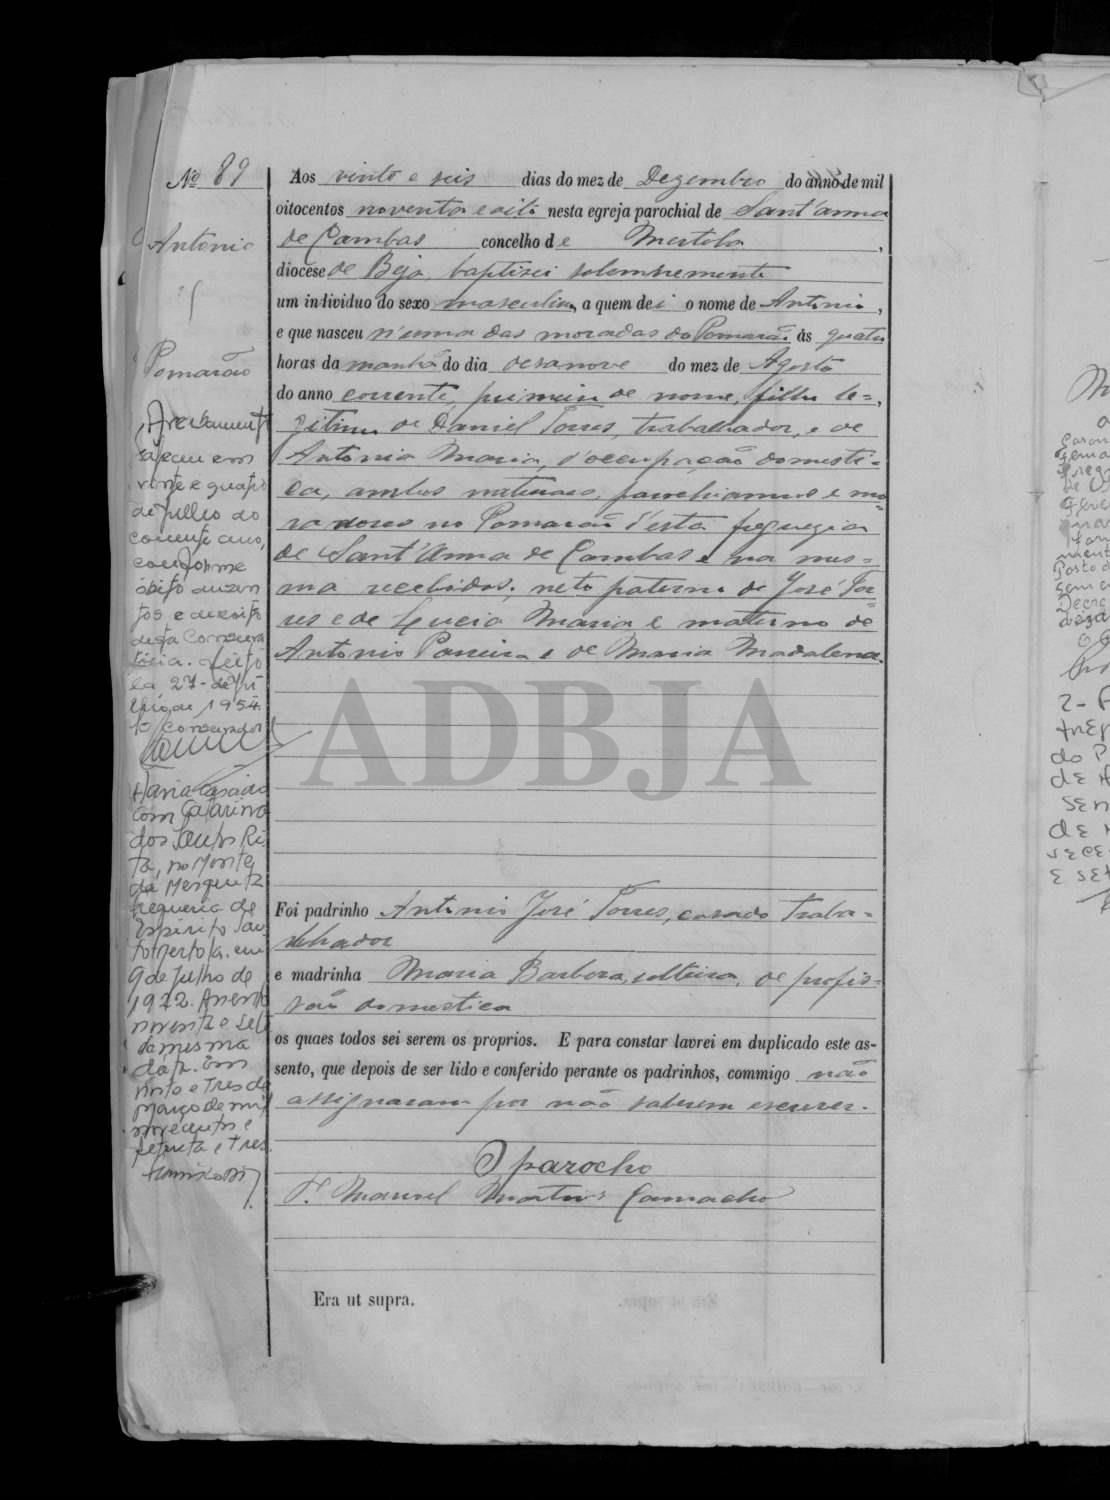 Nº 89
Antonio
Pomarão
Averbamento
Faleceu em
vinte e quatro
de julho do
corrente ano,
conforme
óbito duzen
tos e dezoito
desta Conserva
tória.
27 de Ju
lho de 1954.
O Conservador
Havia casado
com Catarina
dos Santos Ri
ta, no Monte
da Mesquita
freguesia de
Espirito San
to Mertola. em
9 de Julho de
1922. Assento
noventa e sete
da mesma
data. Em
vinte e tres de
março de mil
novecentos e
setenta e tres.
Aos vinte e seis dias do mez de Dezembro do anno de mil
oitocentos noventa e oito nesta egreja parochial de Sant'anna
de Cambas concelho de Mertola,
diocese de Beja, baptisei solemnemente
um individuo do sexo masculino, a quem dei o nome de Antonio,
e que nasceu n'uma das moradas do Pomarão ás quatro
horas da manhã do dia desanove do mez de Agosto
do anno corrente, primeiro de nome, filho le-
gitimo de Daniel Torres, trabalhador, e de
Antonia Maria, d'occupação domesti-
ca, ambos naturaes, parochianos e mo-
radores no Pomarão d'esta freguezia
de Sant'Anna de Cambas e na mes-
ma recebidos, neto paterno de José Tor-
res e de Lucia Maria e materno de
Antonio Parreira e de Maria Madalena.
ADBJA
Foi padrinho Antonio José Torres, casado traba-
lhador
e madrinha Maria Barbora, solteira, de profis-
são domestica
os quaes todos sei serem os proprios. E para constar lavrei em duplicado este as-
sento, que depois de ser lido e conferido perante os padrinhos, commigo não
assignaram por não saberem escrever.
O parocho
P. Manoel Martins Camacho
Era ut supra.